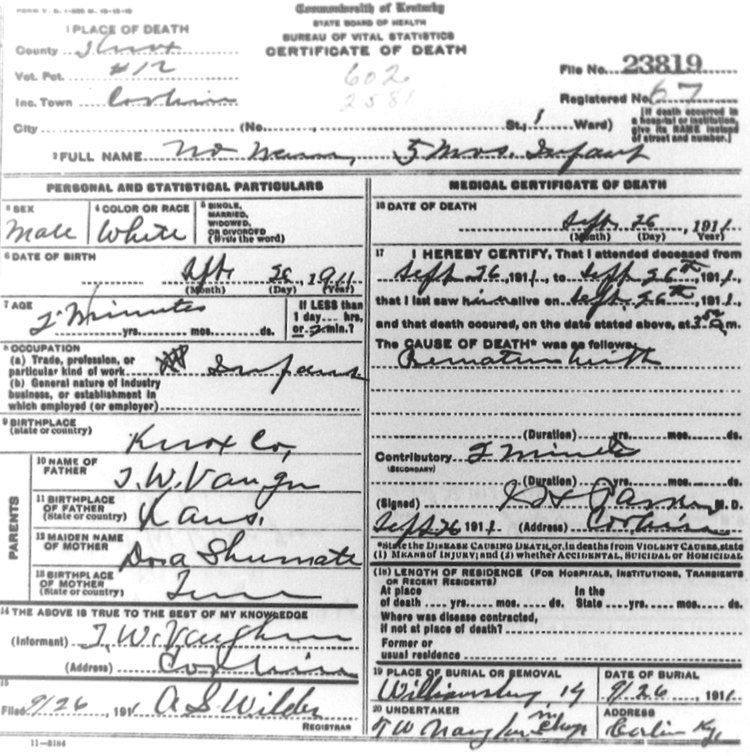 FORM V. S. 1
Commonwealth of Kentucky
STATE BOARD OF HEALTH
BUREAU OF VITAL STATISTICS
CERTIFICATE OF DEATH
1 PLACE OF DEATH
County Knox
Vot. Pct. #12
Inc. Town
602
2581
File No. 23819
Registered No. 67
City (No. , St., Ward)
[If death occurred in a hospital or institution, give its NAME instead of street and number.]
2 FULL NAME No Name, 5 Mos. Infant
PERSONAL AND STATISTICAL PARTICULARS
3 SEX
Male
4 COLOR OR RACE
White
5 SINGLE, MARRIED, WIDOWED, OR DIVORCED (Write the word)
6 DATE OF BIRTH
Sept 26 1911
(Month) (Day) (Year)
7 AGE
2 Minutes
yrs. mos. ds.
If LESS than 1 day hrs. or 2 min.?
8 OCCUPATION
(a) Trade, profession, or particular kind of work Infant
(b) General nature of industry business, or establishment in which employed (or employer)
9 BIRTHPLACE
(State or country)
Knox Co,
PARENTS
10 NAME OF FATHER
T. W. Vaughn
11 BIRTHPLACE OF FATHER (State or country)
Kans.
12 MAIDEN NAME OF MOTHER
Dora Shumate
13 BIRTHPLACE OF MOTHER (State or country)
Tenn
14 THE ABOVE IS TRUE TO THE BEST OF MY KNOWLEDGE
(Informant) T. W. Vaughn
(Address)
15
Filed 9/26, 1911 A S Wilder
REGISTRAR
11-3184
MEDICAL CERTIFICATE OF DEATH
16 DATE OF DEATH
Sept 26, 1911
(Month) (Day) (Year)
17 I HEREBY CERTIFY, That I attended deceased from
Sept 26, 1911, to Sept 26th, 1911,
that I last saw him alive on Sept 26th, 1911,
and that death occured, on the date stated above, at m.
The CAUSE OF DEATH* was as follows:
(Duration) yrs. mos. ds.
Contributory 2 Minutes
(SECONDARY)
(Duration) yrs. mos. ds.
(Signed) M. D.
Sept 26 1911 (Address)
*State the DISEASE CAUSING DEATH, or, in deaths from VIOLENT CAUSES, state
(1) MEANS OF INJURY; and (2) whether ACCIDENTAL, SUICIDAL or HOMICIDAL
(18) LENGTH OF RESIDENCE (FOR HOSPITALS, INSTITUTIONS, TRANSIENTS OR RECENT RESIDENTS)
At place of death yrs. mos. ds.
In the State yrs. mos. ds.
Where was disease contracted, if not at place of death?
Former or usual residence
19 PLACE OF BURIAL OR REMOVAL
Williamsburg Ky
DATE OF BURIAL
9/26, 1911
20 UNDERTAKER
ADDRESS
Ky